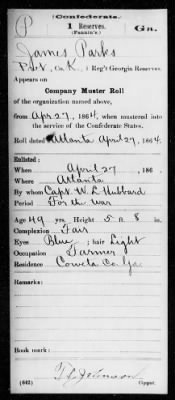 (Confederate.)
P 1 Reserves. Ga.
(Fannin's.)
James Parks
Pvt, Co. K, 1 Reg't Georgia Reserves.
Appears on
Company Muster Roll
of the organization named above,
from Apr 27, 1864, when mustered into
the service of the Confederate States.
Roll dated Atlanta April 27, 1864.
Enlisted:
When April 27, 186 .
Where Atlanta
By whom Capt. W. L. Hubbard
Period For the war
Age 49 yrs Height 5 ft. 8 in.
Complexion Fair
Eyes Blue ; hair Light
Occupation Farmer
Residence Coweta Co. Ga.
Remarks:
Book mark:
Johnson
(642) Copyist.